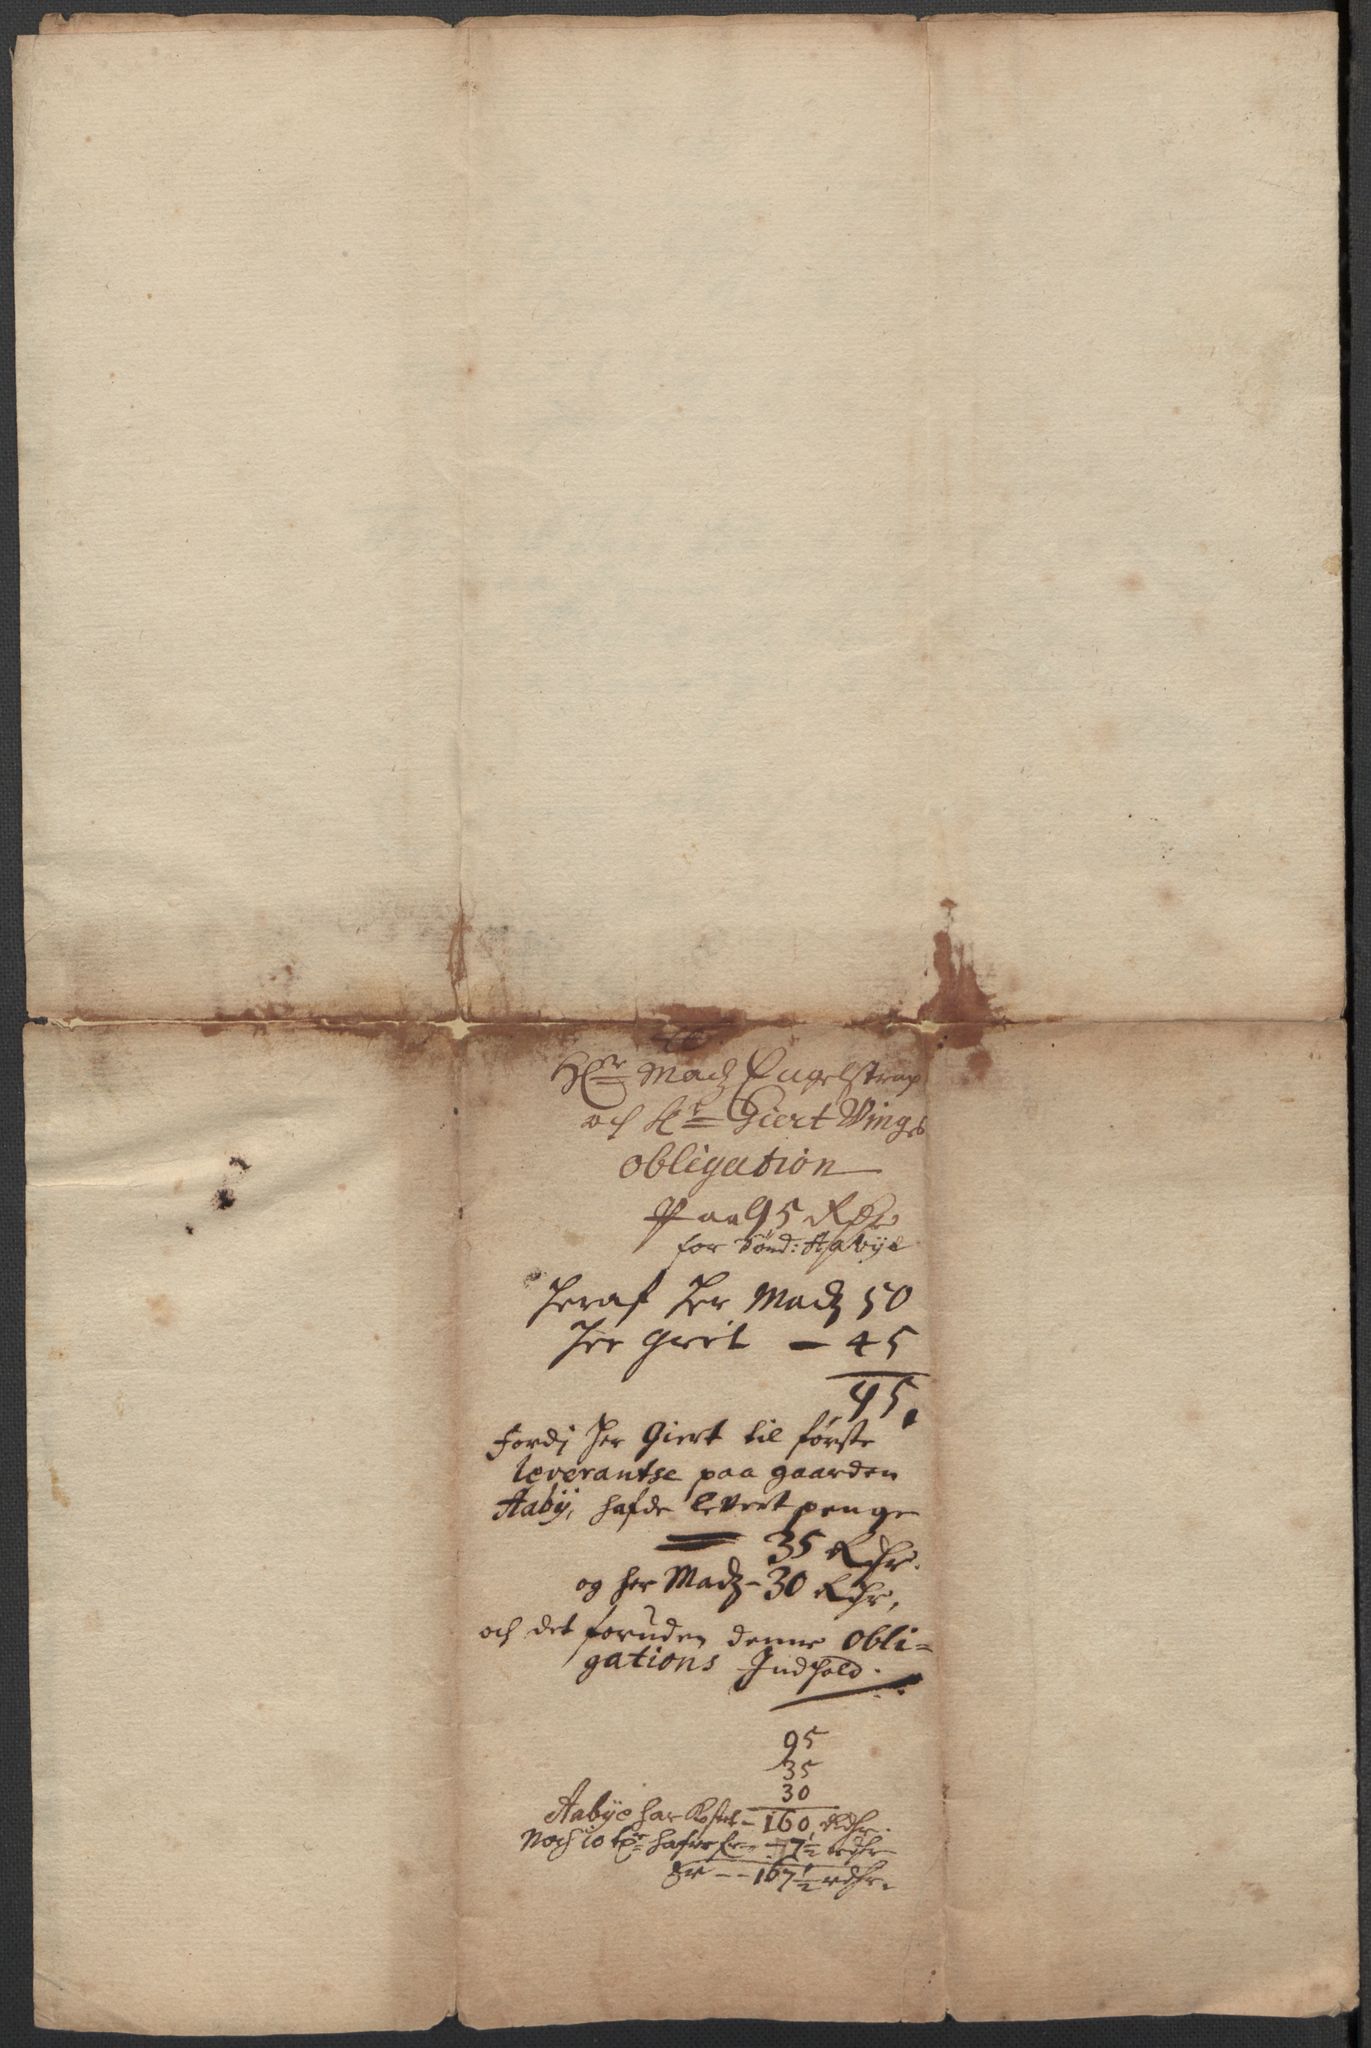 Hr Madz Engelstrup
och Hr Giert Wings
obligation
Paa 95 Rdr
for Sönd: Aabÿe
Heraf Her Madz 50
Her Giert — 45
95.
Fordj her Giert til første
leverantse paa gaarden
Aabÿ, hafde levert penge
35 Rdhr.
og her Madz - 30 Rdhr,
och det foruden denne obli=
gations Indhold.
95
35
30
Aabÿe har kostet - 160, Rdhr.
Noch 10 hafre - 7½ rdhr
Er - - 167½ rdhr.